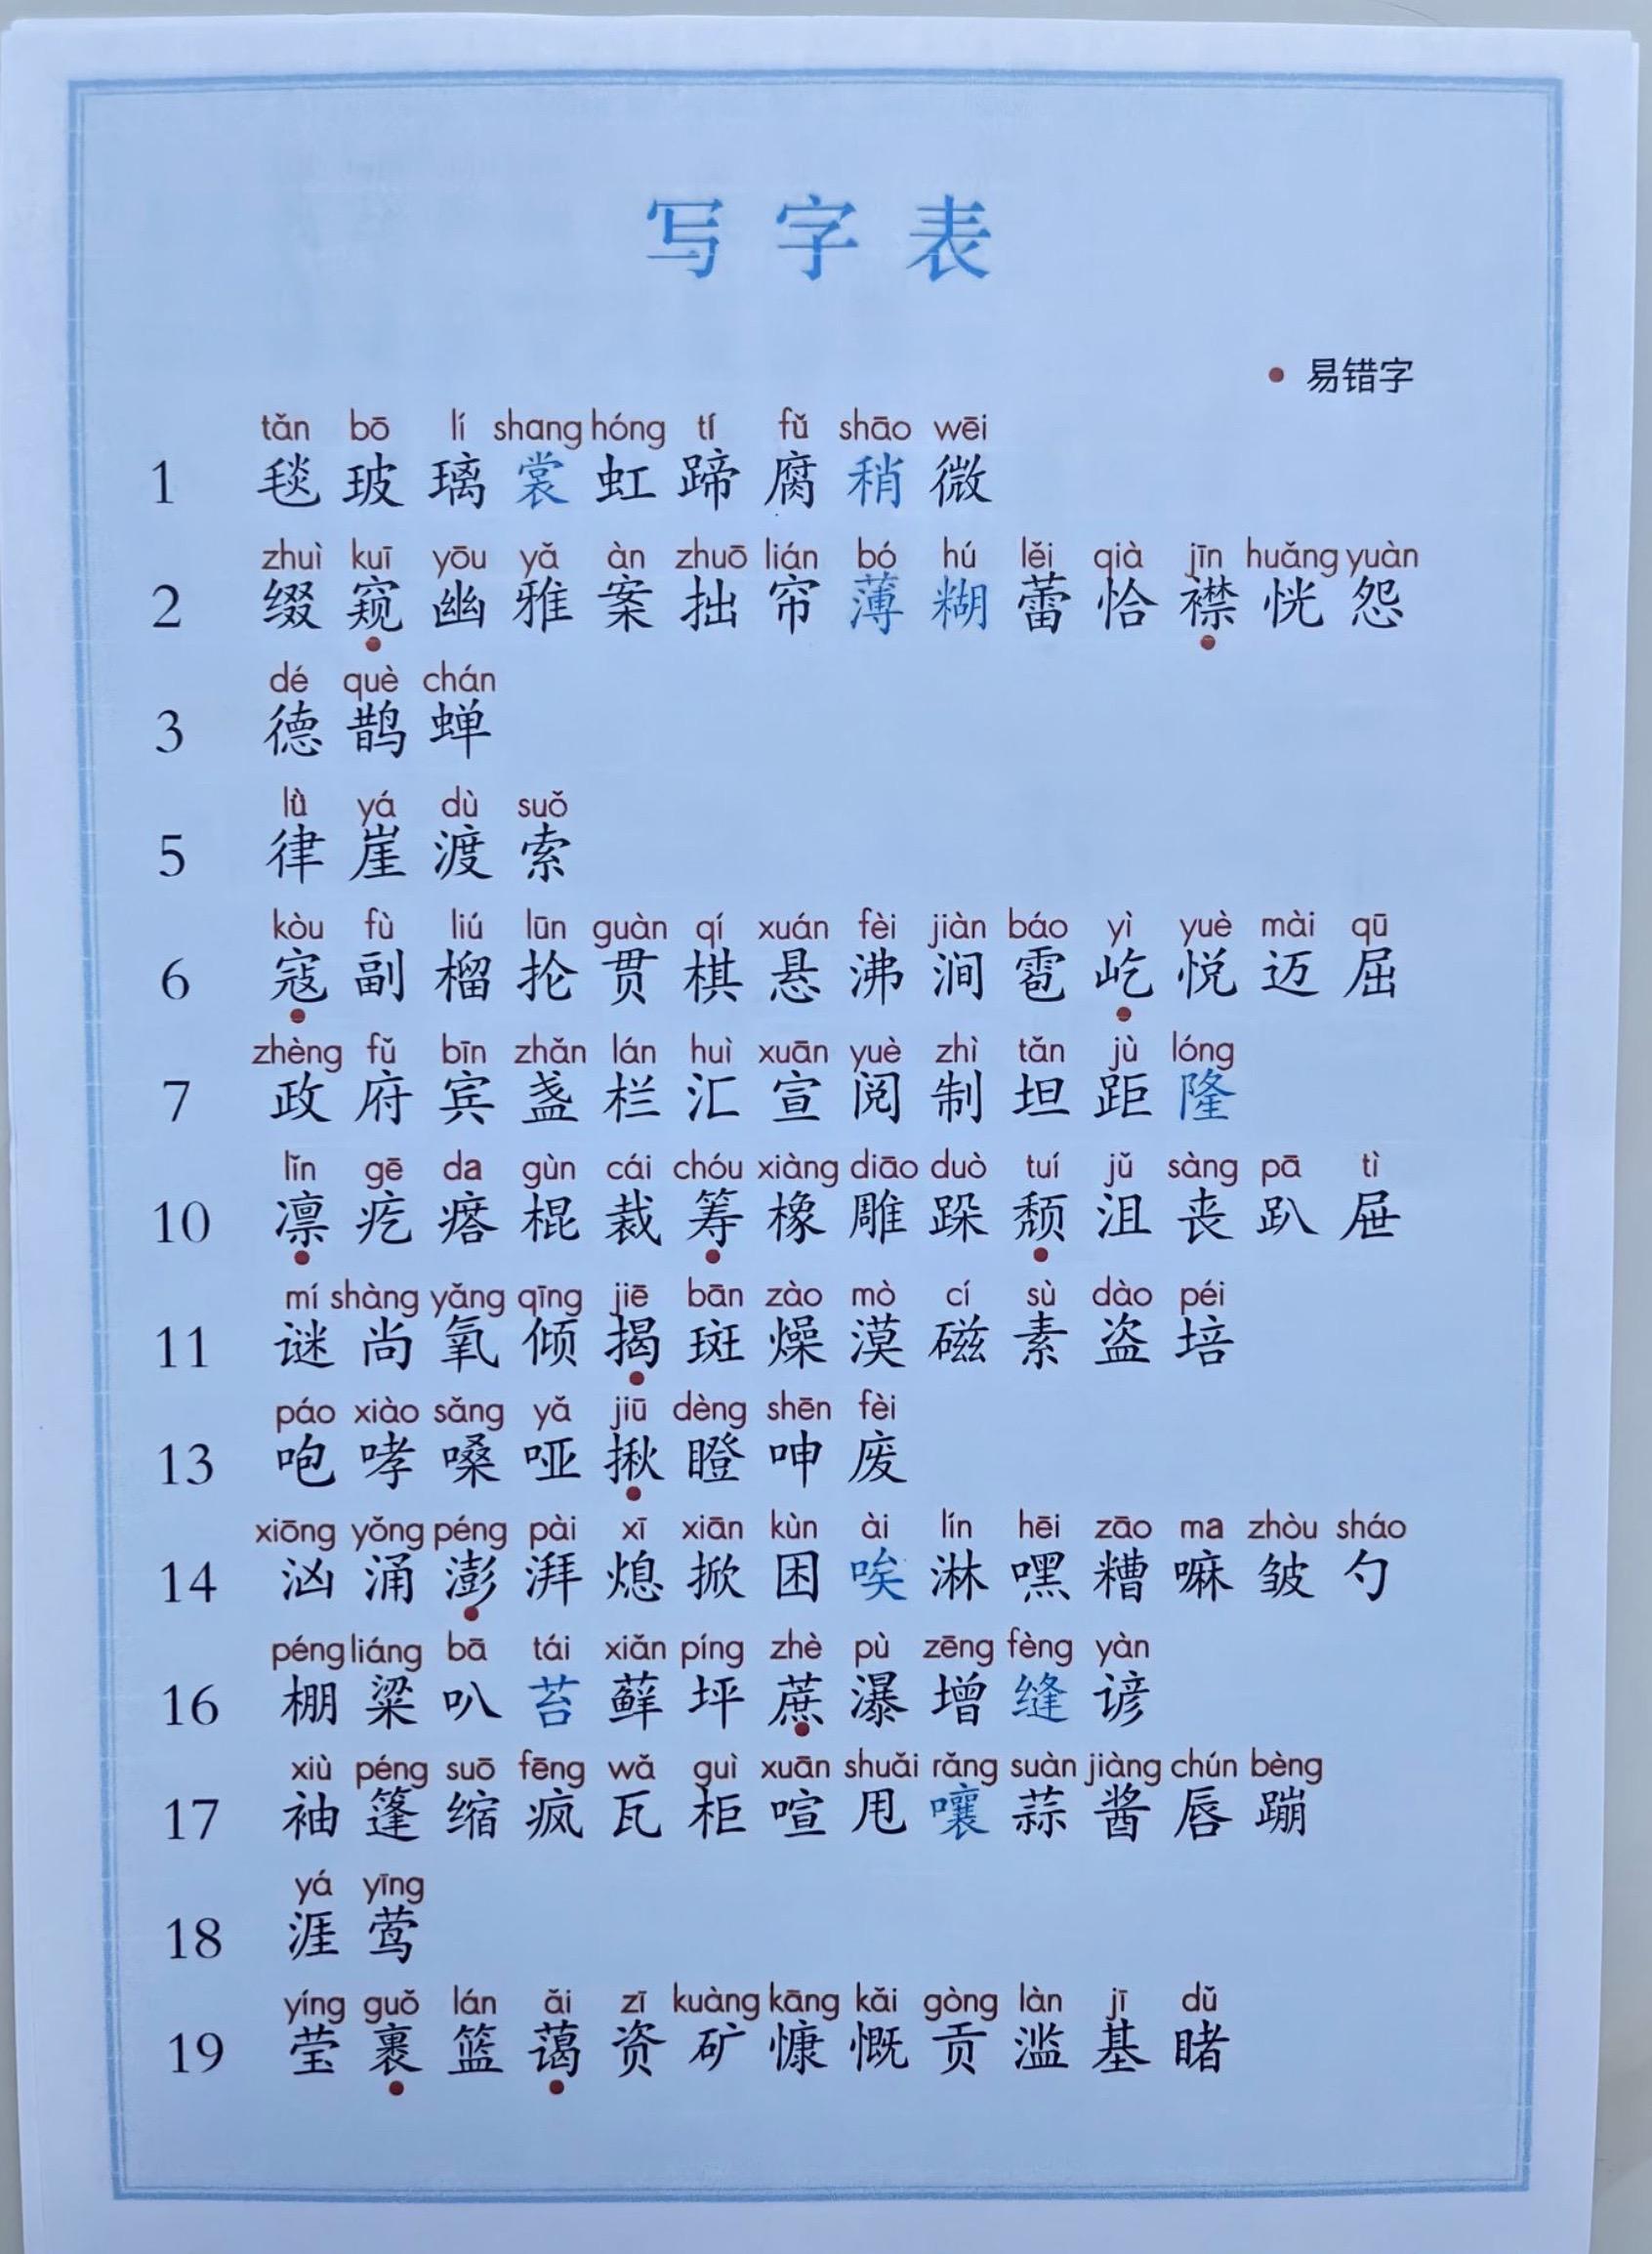 写字表
• 易错字
tǎn bō lí shang hóng tí fǔ shāo wēi
1 毯 玻 璃 裳 虹 蹄 腐 稍 微
zhuì kuī yōu yǎ àn zhuō lián bó hú lěi qià jīn huǎng yuàn
2 缀 窥 幽 雅 案 拙 帘 薄 糊 蕾 恰 襟 恍 怨
dé què chán
3 德 鹊 蝉
lǜ yá dù suǒ
5 律 崖 渡 索
kòu fù liú lūn guàn qí xuán fèi jiàn báo yì yuè mài qū
6 寇 副 榴 抡 贯 棋 悬 沸 涧 雹 屹 悦 迈 屈
zhèng fǔ bīn zhǎn lán huì xuān yuè zhì tǎn jù lóng
7 政 府 宾 盏 栏 汇 宣 阅 制 坦 距 隆
lǐn gē da gùn cái chóu xiàng diāo duò tuí jǔ sàng pā tì
10 凛 疙 瘩 棍 裁 筹 橡 雕 跺 颓 沮 丧 趴 屉
mí shàng yǎng qīng jiē bān zào mò cí sù dào péi
11 谜 尚 氧 倾 揭 斑 燥 漠 磁 素 盗 培
páo xiào sǎng yǎ jiū dèng shēn fèi
13 咆 哮 嗓 哑 揪 瞪 呻 废
xiōng yǒng péng pài xī xiān kùn ài lín hēi zāo ma zhòu sháo
14 汹 涌 澎 湃 熄 掀 困 唉 淋 嘿 糟 嘛 皱 勺
péng liáng bā tái xiǎn píng zhè pù zēng fèng yàn
16 棚 梁 叭 苔 藓 坪 蔗 瀑 增 缝 谚
xiù péng suō fēng wǎ guì xuān shuǎi rǎng suàn jiàng chún bèng
17 袖 篷 缩 疯 瓦 柜 喧 甩 嚷 蒜 酱 唇 蹦
yá yīng
18 涯 莺
yíng guǒ lán ǎi zī kuàng kāng kǎi gòng làn jī dǔ
19 莹 裹 篮 蔼 资 矿 慷 慨 贡 滥 基 睹